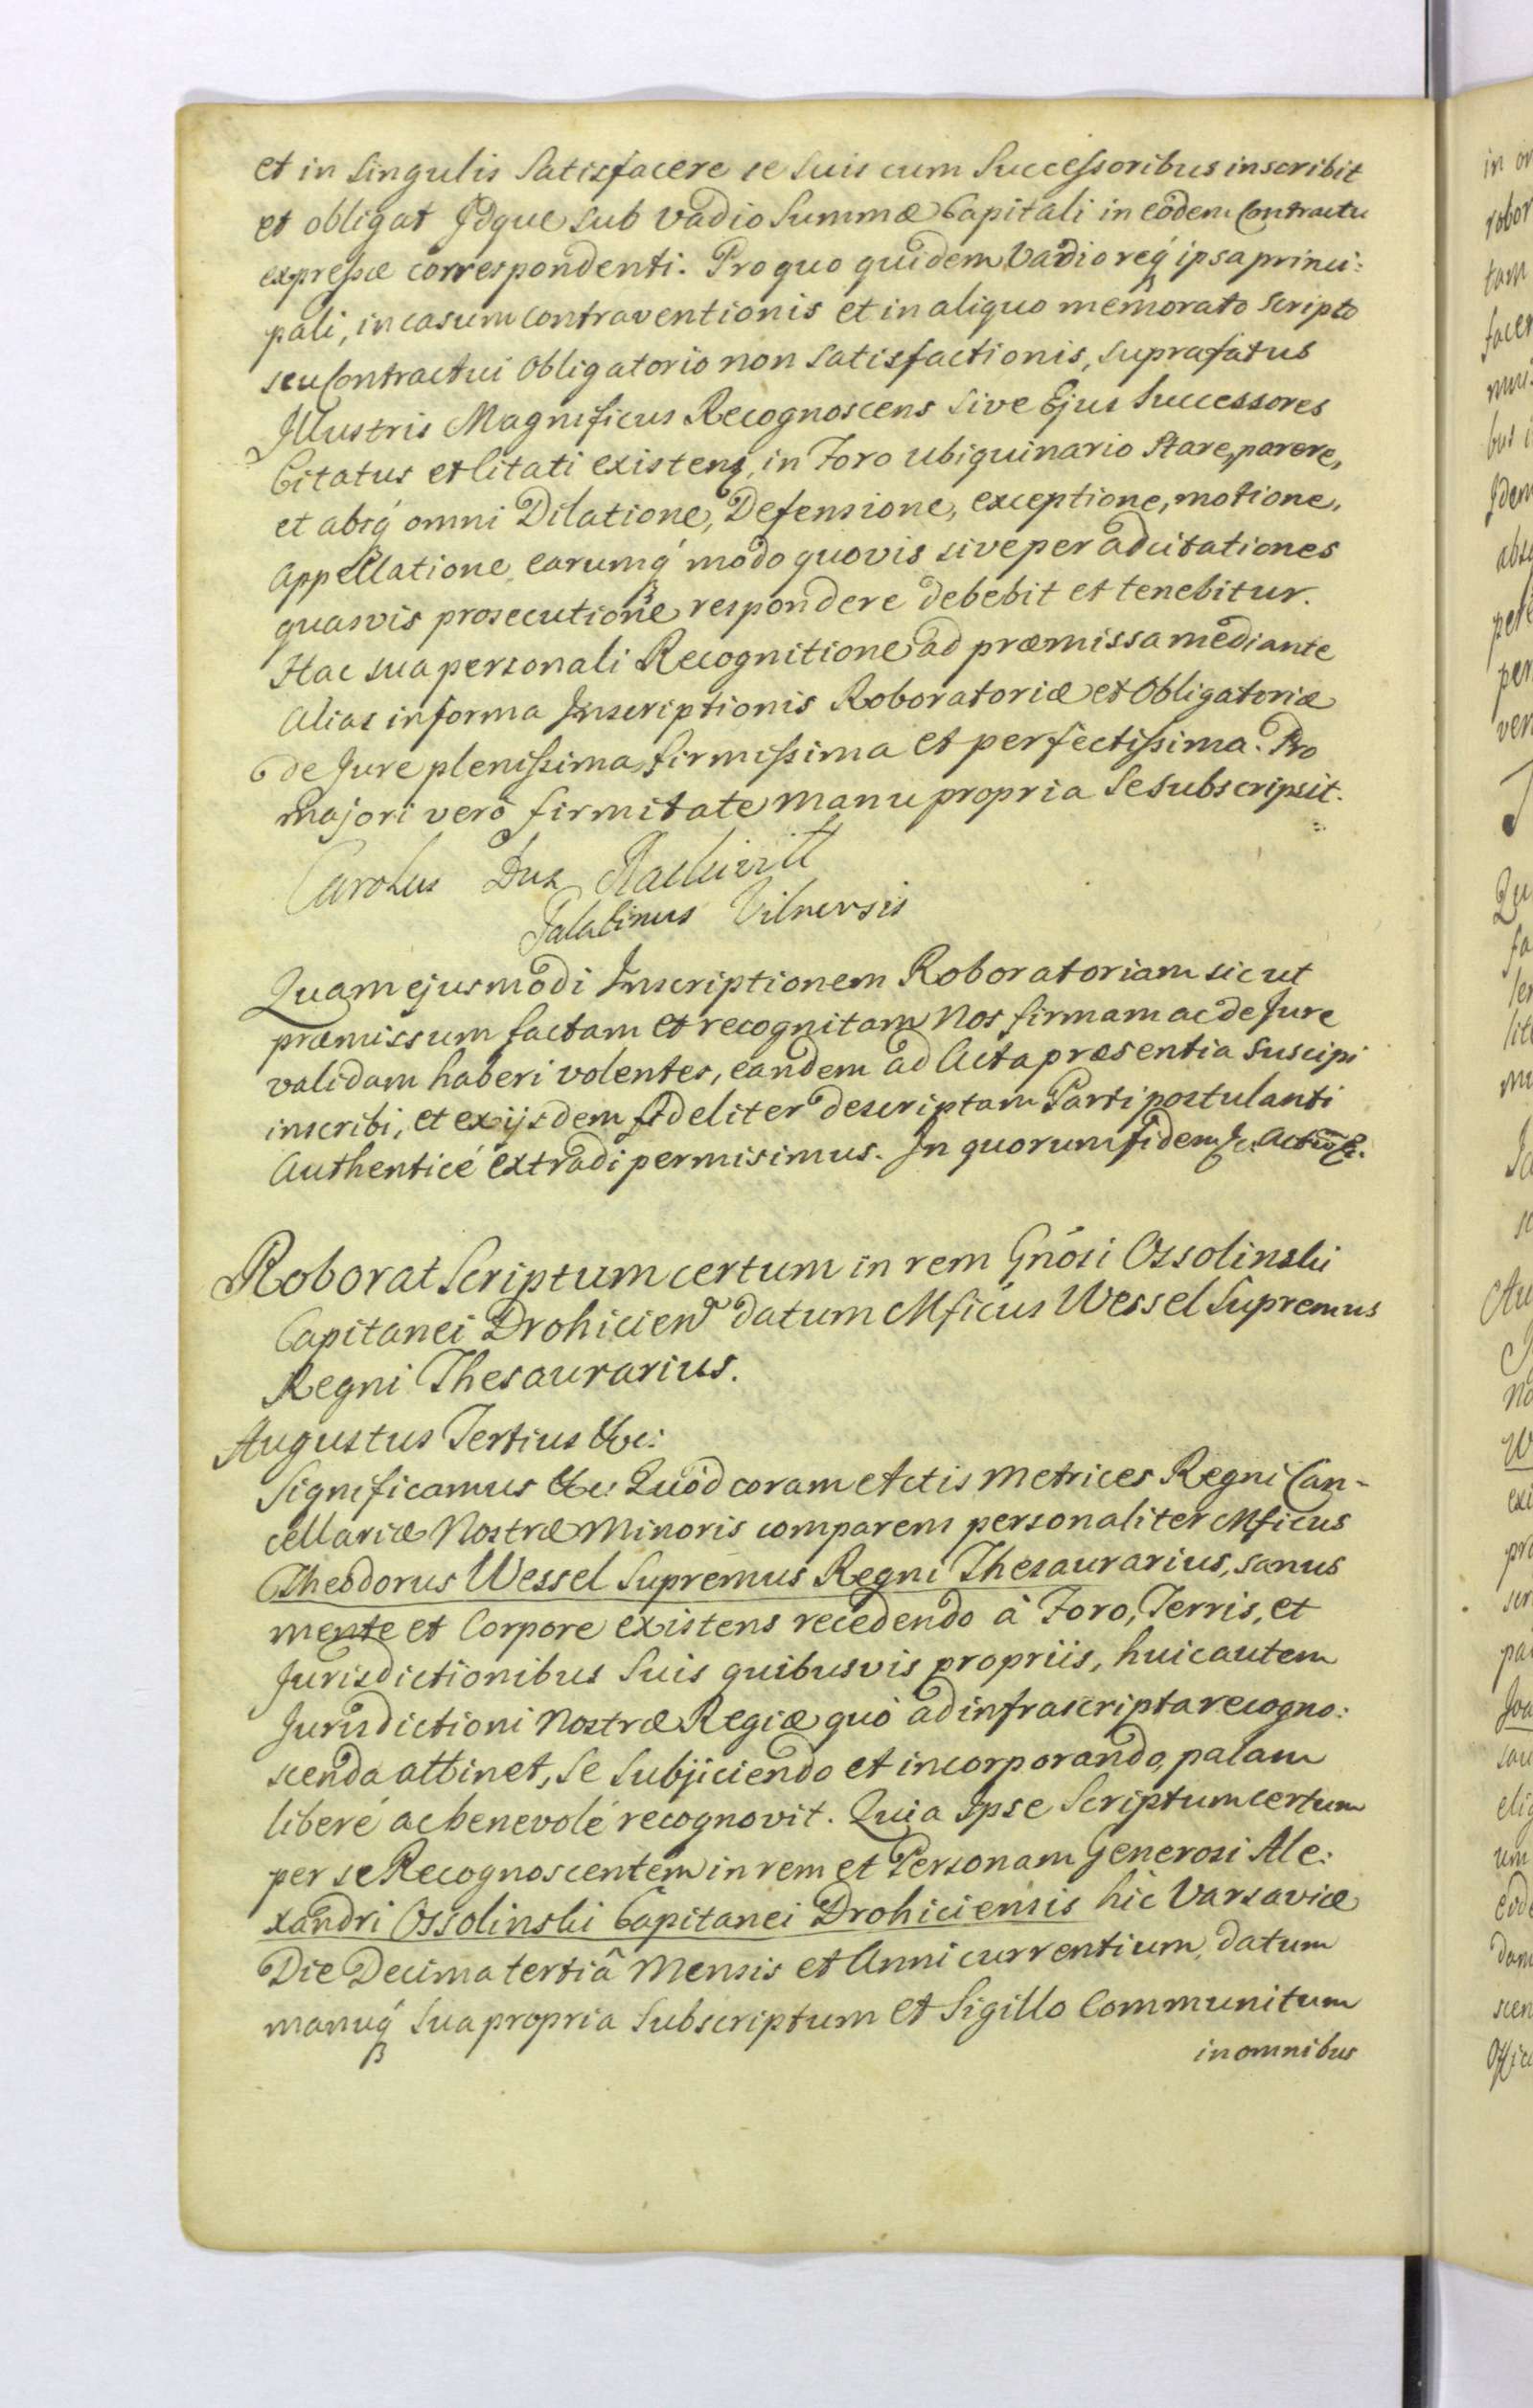 et in Singulis Satisfacere se Suis cum Successoribus inscribit
et obligat Idque sub vadio Summæ Capitali in eodem Contractu
expressæ correspondenti. Pro quo quidem Vadio req́ ipsa princi:
pali, in casum Contraventionis et in aliquo memorato Scripto
seu Contractui Obligatorio non Satisfactionis, Suprafatus
Illustris Magnificus Recognoscens Sive Ejus Successores
Citatus et Citati existens, in Foro ubiquinario Stare, parere,
et absq́ omni Dilatione, Defensione, exceptione, motione,
Appellatione, earumq́ modo quovis sive per adcitationes
quasvis prosecutione respondere debebit et tenebitur.
Hac sua personali Recognitione ad præmissa mediante
Alias in forma Inscriptionis Roboratoriæ et Obligatoriæ
de Jure plenissima, firmissima et perfectissima. Pro
majori verò firmitate manu propria Se Subscripsit.
Carolus Dux Radziwiłł
Palatinus Vilnensis
Quam ejusmodi Inscriptionem Roboratoriam sicut
præmissum factam et recognitam Nos firmam ac de Jure
validam haberi volentes, eandem ad Acta præsentia Suscipi
inscribi, et ex ijsdem fideliter descriptam Parti postulanti
Authenticé extradi permisimus. In quorum fidem &c. Actũ &c.
Roborat Scriptum certum in rem Gnósi Ossolinski
Capitanei Drohicien datum Mficus Wessel Supremus
Regni Thesaurarius.
Augustus Tertius &c:
Significamus &c: Quòd coram Actis Metrices Regni Can-
cellariæ Nostræ Minoris comparens personaliter Mficus
Theodorus Wessel Supremus Regni Thesaurarius, sanus
mente et Corpore existens recedendo à Foro, Terris, et
Jurisdictionibus Suis quibusvis propriis, huic autem
Jurisdictioni Nostræ Regiæ quò ad infrascripta recogno:
scenda attinet, Se Subjiciendo et incorporando, palam
liberé ac benevolé recognovit. Quia Ipse Scriptum certum
per se Recognoscentem in rem et Personam Generosi Ale:
xandri Ossolinski Capitanei Drohiciensis hic Varsaviæ
Die Decima tertiâ Mensis et Anni currentium, datum
manuq́ Sua propria Subscriptum et Sigillo Communitum
in omnibus